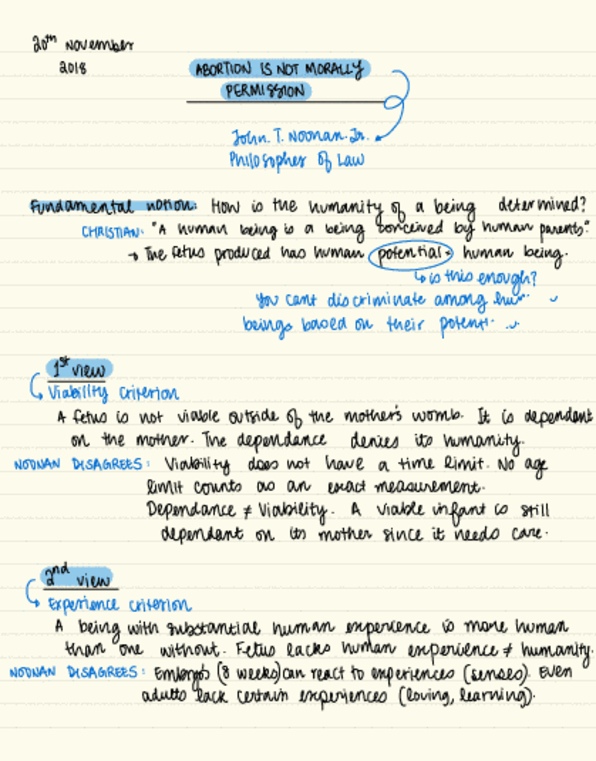 20th November
2018
ABORTION IS NOT MORALLY
PERMISSION
John. T. Noonan. Jr.
Philosopher of Law
Fundamental notion: How is the humanity of a being determined?
CHRISTIAN: "A human being is a being conceived by human parents".
→ The fetus produced has human potential → human being.
↳ is this enough?
You cant discriminate among
beings based on their
1st view
↳ Viability criterion
A fetus is not viable outside of the mother's womb. It is dependent
on the mother. The dependance denies its humanity.
NOONAN DISAGREES: Viability does not have a time limit. No age
limit counts as an exact measurement.
Dependance ≠ Viability. A viable infant is still
dependant on its mother since it needs care.
2nd view
↳ Experience criterion
A being with substantial human experience is more human
than one without. Fetus lacks human experience ≠ humanity.
NOONAN DISAGREES: Embryos (8 weeks) can react to experiences (senses). Even
adults lack certain experiences (loving, learning).